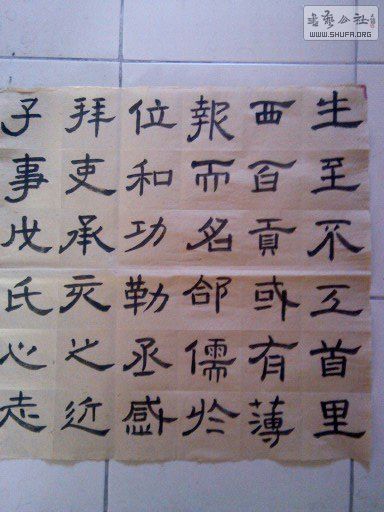 生至不首里
西百貢或有薄
報而名郃儒於
位和功勒丞感
拜吏承亥之近
子事戊氏心志
書藝公社
WWW.SHUFA.ORG